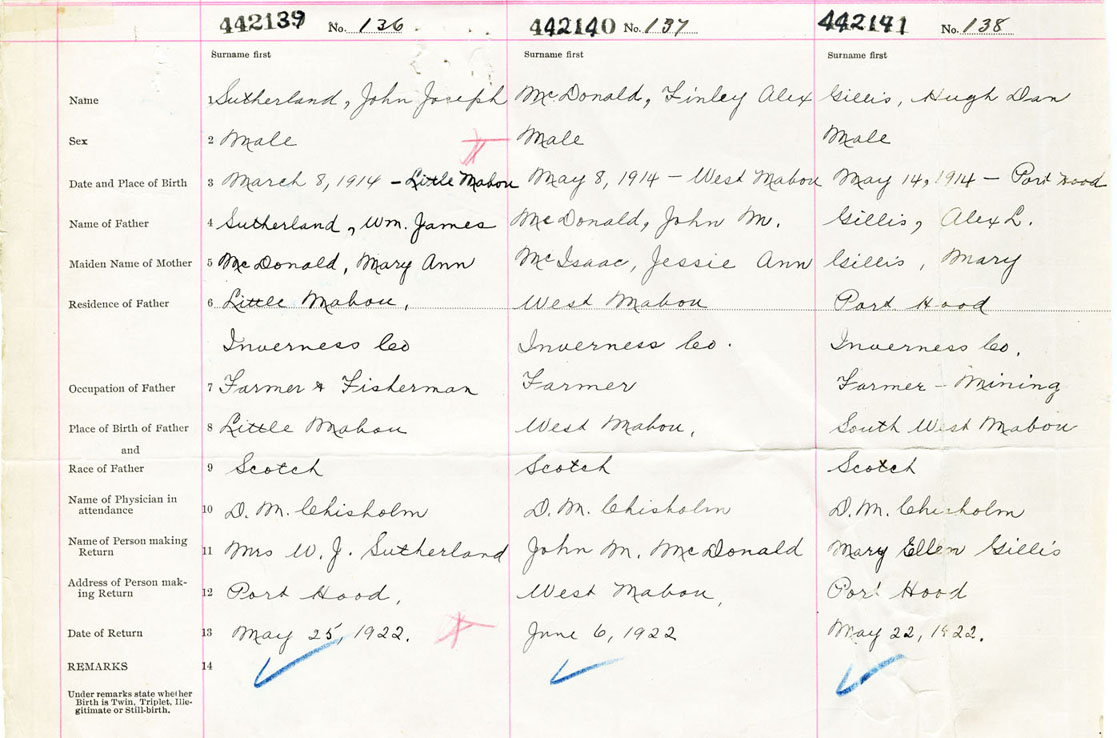 442139 No. 136 442140 No. 137 442141 No. 138
Surname first Surname first Surname first
Name 1 Sutherland, John Joseph McDonald, Finley Alex Gillis, Hugh Dan
Sex 2 Male Male Male
Date and Place of Birth 3 March 8, 1914 - Little Mabou May 8, 1914 - West Mabou May 14, 1914 - Port Hood
Name of Father 4 Sutherland, Wm. James McDonald, John M. Gillis, Alex L.
Maiden Name of Mother 5 McDonald, Mary Ann McIsaac, Jessie Ann Gillis, Mary
Residence of Father 6 Little Mabou, West Mabou Port Hood
Inverness Co Inverness Co. Inverness Co.
Occupation of Father 7 Farmer & Fisherman Farmer Farmer - Mining
Place of Birth of Father 8 Little Mabou West Mabou, South West Mabou
and
Race of Father 9 Scotch Scotch Scotch
Name of Physician in
attendance 10 D. M. Chisholm D. M. Chisholm D. M. Chisholm
Name of Person making
Return 11 Mrs W. J. Sutherland John M. McDonald Mary Ellen Gillis
Address of Person mak-
ing Return 12 Port Hood, West Mabou, Port Hood
Date of Return 13 May 25, 1922. June 6, 1922 May 22, 1922.
REMARKS 14
Under remarks state whether
Birth is Twin, Triplet, Ille-
gitimate or Still-birth.